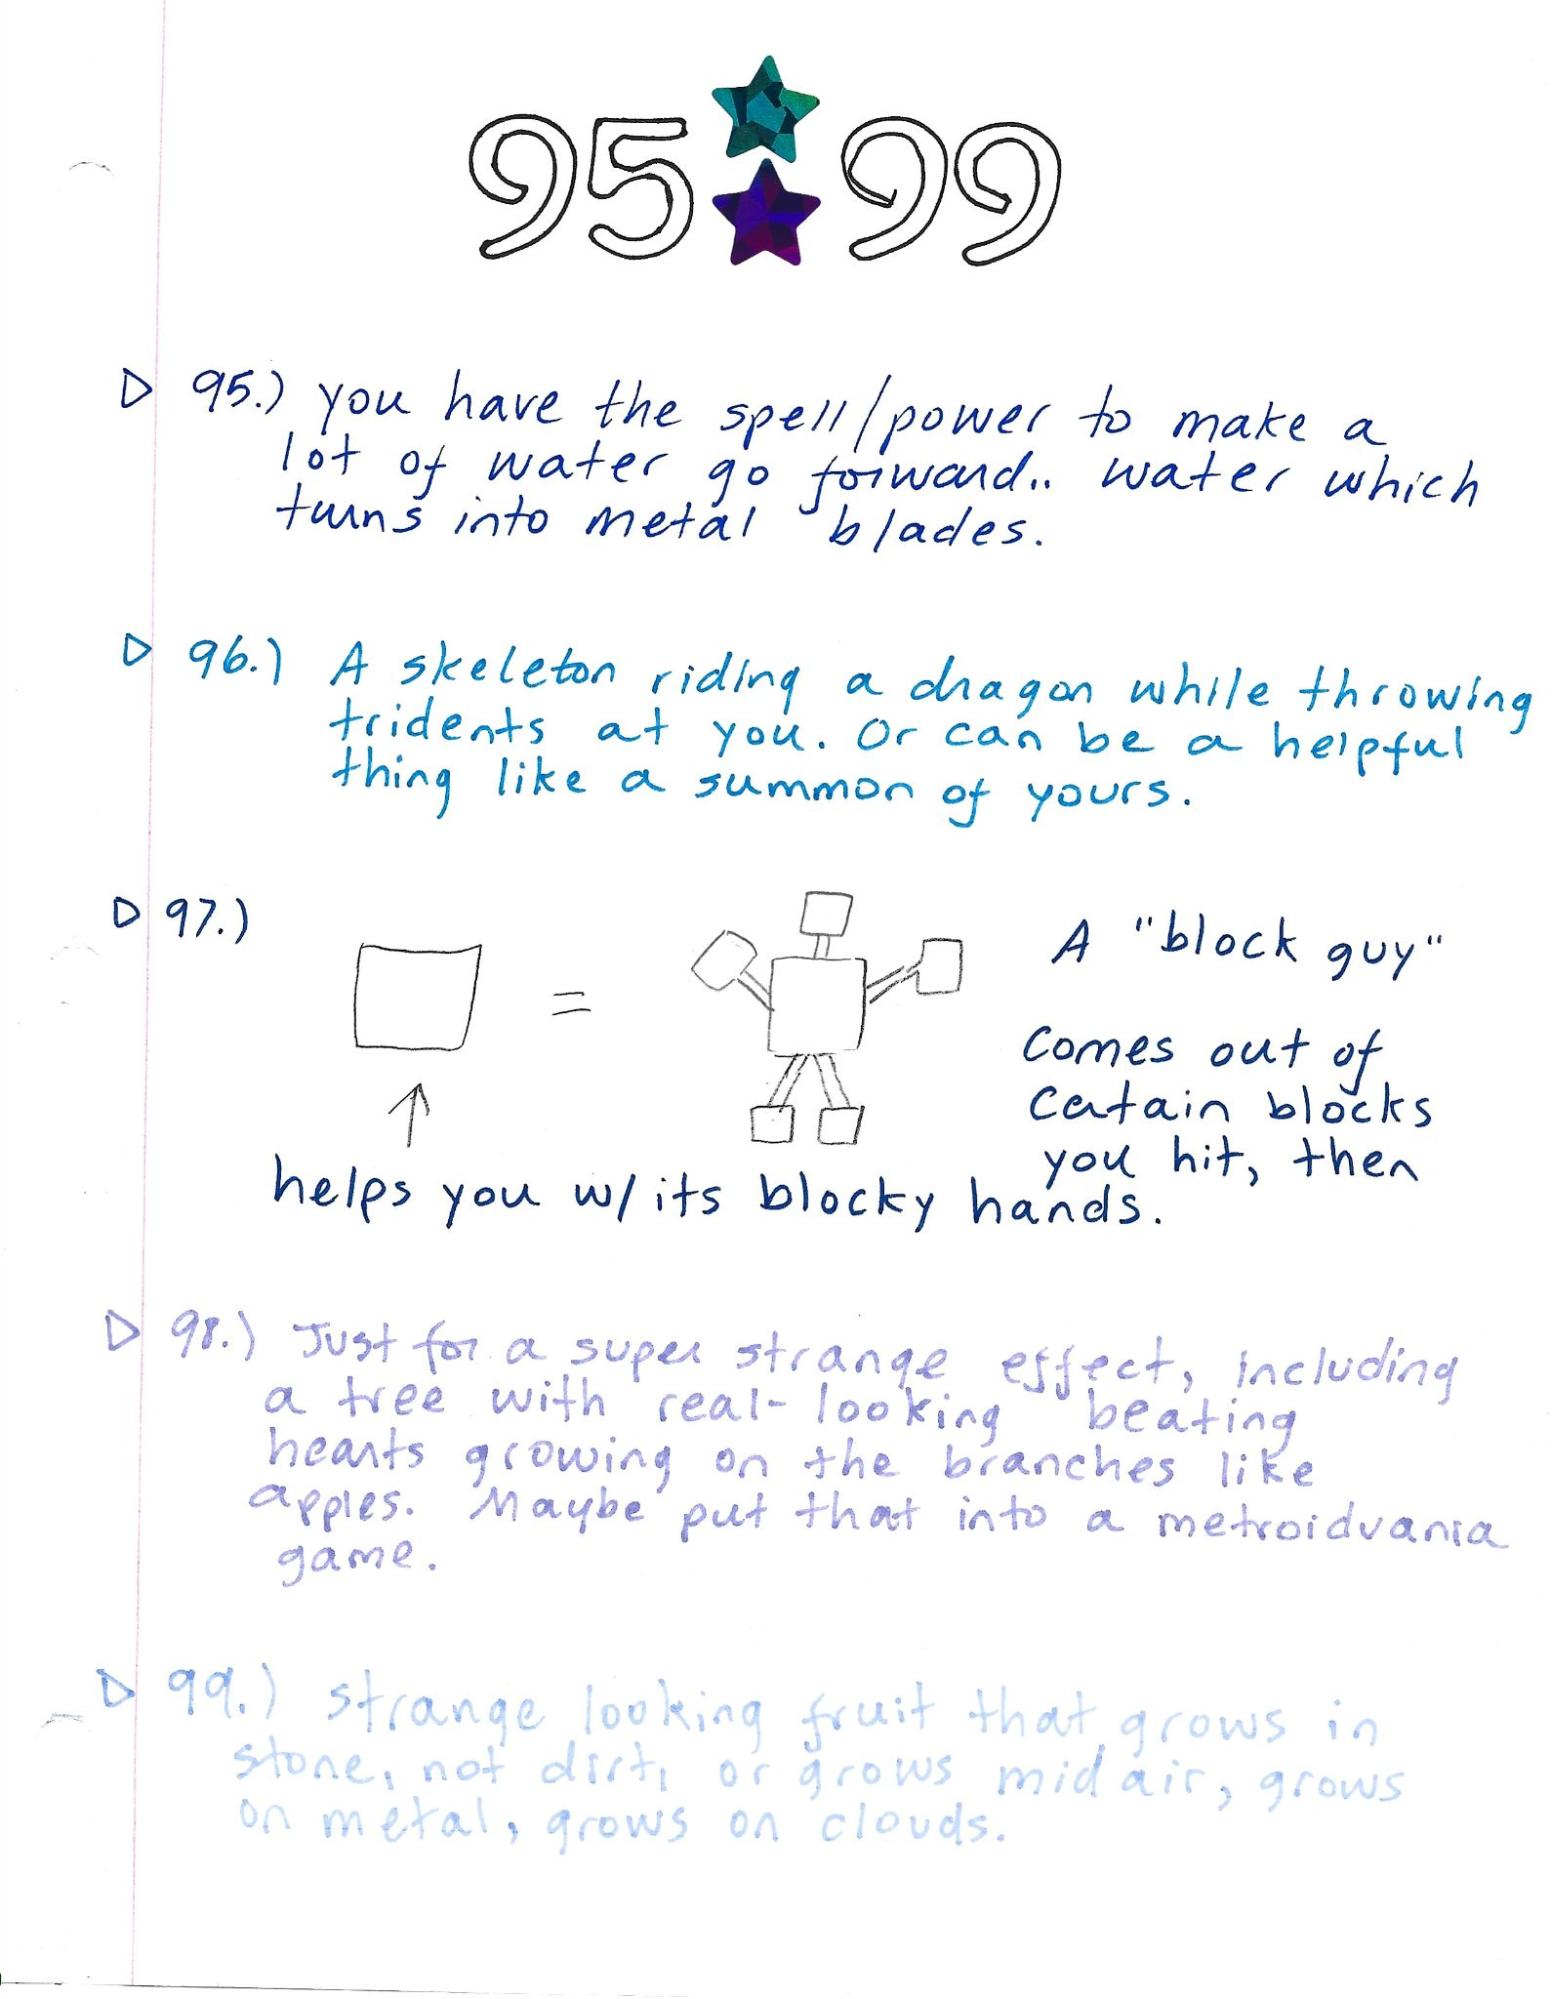 95 99
▷ 95.) you have the spell/power to make a
lot of water go forward.. water which
turns into metal blades.
▷ 96.) A skeleton riding a dragon while throwing
tridents at you. Or can be a helpful
thing like a summon of yours.
▷ 97.)
=
A "block guy"
Comes out of
Certain blocks
you hit, then
↑
helps you w/ its blocky hands.
▷ 98.) Just for a super strange effect, including
a tree with real-looking beating
hearts growing on the branches like
apples. Maybe put that into a metroidvania
game.
▷ 99.) strange looking fruit that grows in
stone, not dirt, or grows mid air, grows
on metal, grows on clouds.